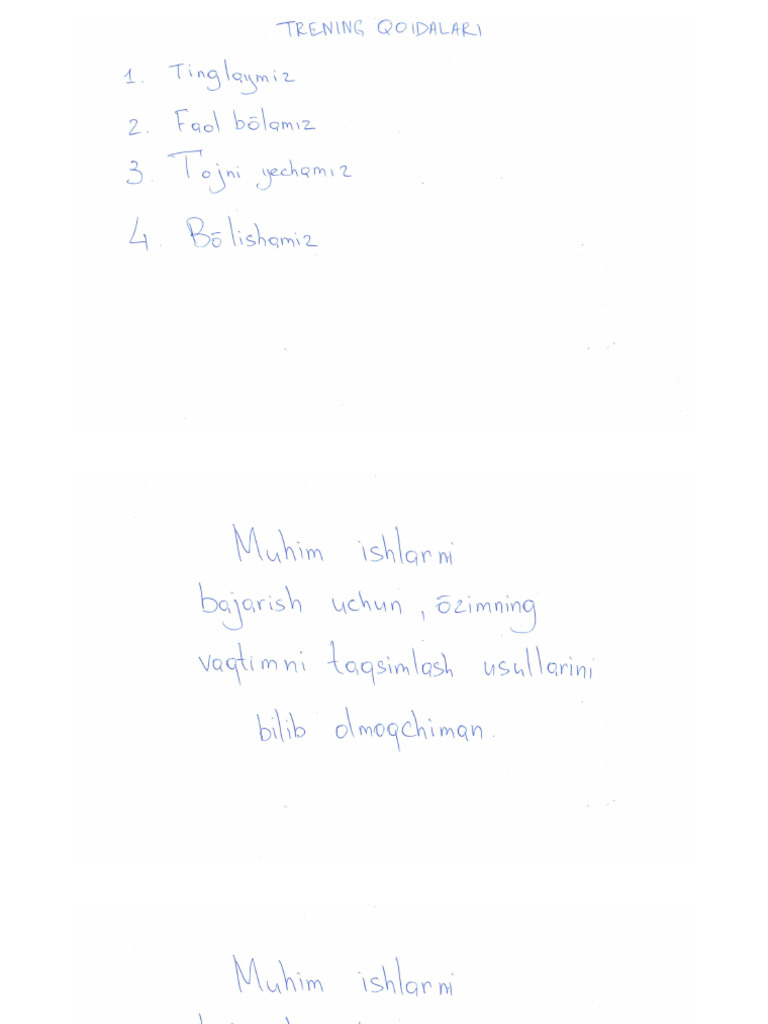 TRENING QOIDALARI
1. Tinglaymiz
2. Faol bōlamiz
3. Tojni yechamiz
4. Bōlishamiz
Muhim ishlarni
bajarish uchun, ōzimning
vaqtimni taqsimlash usullarini
bilib olmoqchiman.
Muhim ishlarni